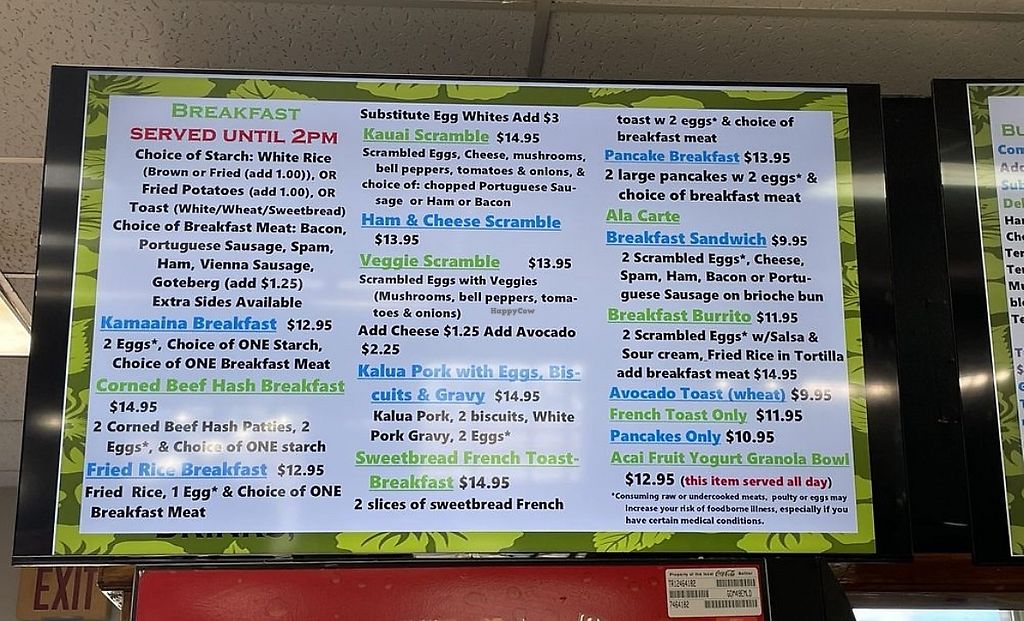 BREAKFAST
SERVED UNTIL 2PM
Choice of Starch: White Rice
(Brown or Fried (add 1.00)), OR
Fried Potatoes (add 1.00), OR
Toast (White/Wheat/Sweetbread)
Choice of Breakfast Meat: Bacon,
Portuguese Sausage, Spam,
Ham, Vienna Sausage,
Goteberg (add $1.25)
Extra Sides Available
Kamaaina Breakfast $12.95
2 Eggs*, Choice of ONE Starch,
Choice of ONE Breakfast Meat
Corned Beef Hash Breakfast
$14.95
2 Corned Beef Hash Patties, 2
Eggs*, & Choice of ONE starch
Fried Rice Breakfast $12.95
Fried Rice, 1 Egg* & Choice of ONE
Breakfast Meat
Substitute Egg Whites Add $3
Kauai Scramble $14.95
Scrambled Eggs, Cheese, mushrooms,
bell peppers, tomatoes & onions, &
choice of: chopped Portuguese Sau-
sage or Ham or Bacon
Ham & Cheese Scramble
$13.95
Veggie Scramble $13.95
Scrambled Eggs with Veggies
(Mushrooms, bell peppers, toma-
toes & onions)
HappyCow
Add Cheese $1.25 Add Avocado
$2.25
Kalua Pork with Eggs, Bis-
cuits & Gravy $14.95
Kalua Pork, 2 biscuits, White
Pork Gravy, 2 Eggs*
Sweetbread French Toast-
Breakfast $14.95
2 slices of sweetbread French
toast w 2 eggs* & choice of
breakfast meat
Pancake Breakfast $13.95
2 large pancakes w 2 eggs* &
choice of breakfast meat
Ala Carte
Breakfast Sandwich $9.95
2 Scrambled Eggs*, Cheese,
Spam, Ham, Bacon or Portu-
guese Sausage on brioche bun
Breakfast Burrito $11.95
2 Scrambled Eggs* w/Salsa &
Sour cream, Fried Rice in Tortilla
add breakfast meat $14.95
Avocado Toast (wheat) $9.95
French Toast Only $11.95
Pancakes Only $10.95
Acai Fruit Yogurt Granola Bowl
$12.95 (this item served all day)
*Consuming raw or undercooked meats, poulty or eggs may
increase your risk of foodborne illness, especially if you
have certain medical conditions.
EXIT
Property of the local Coca-Cola Bottler
7464102